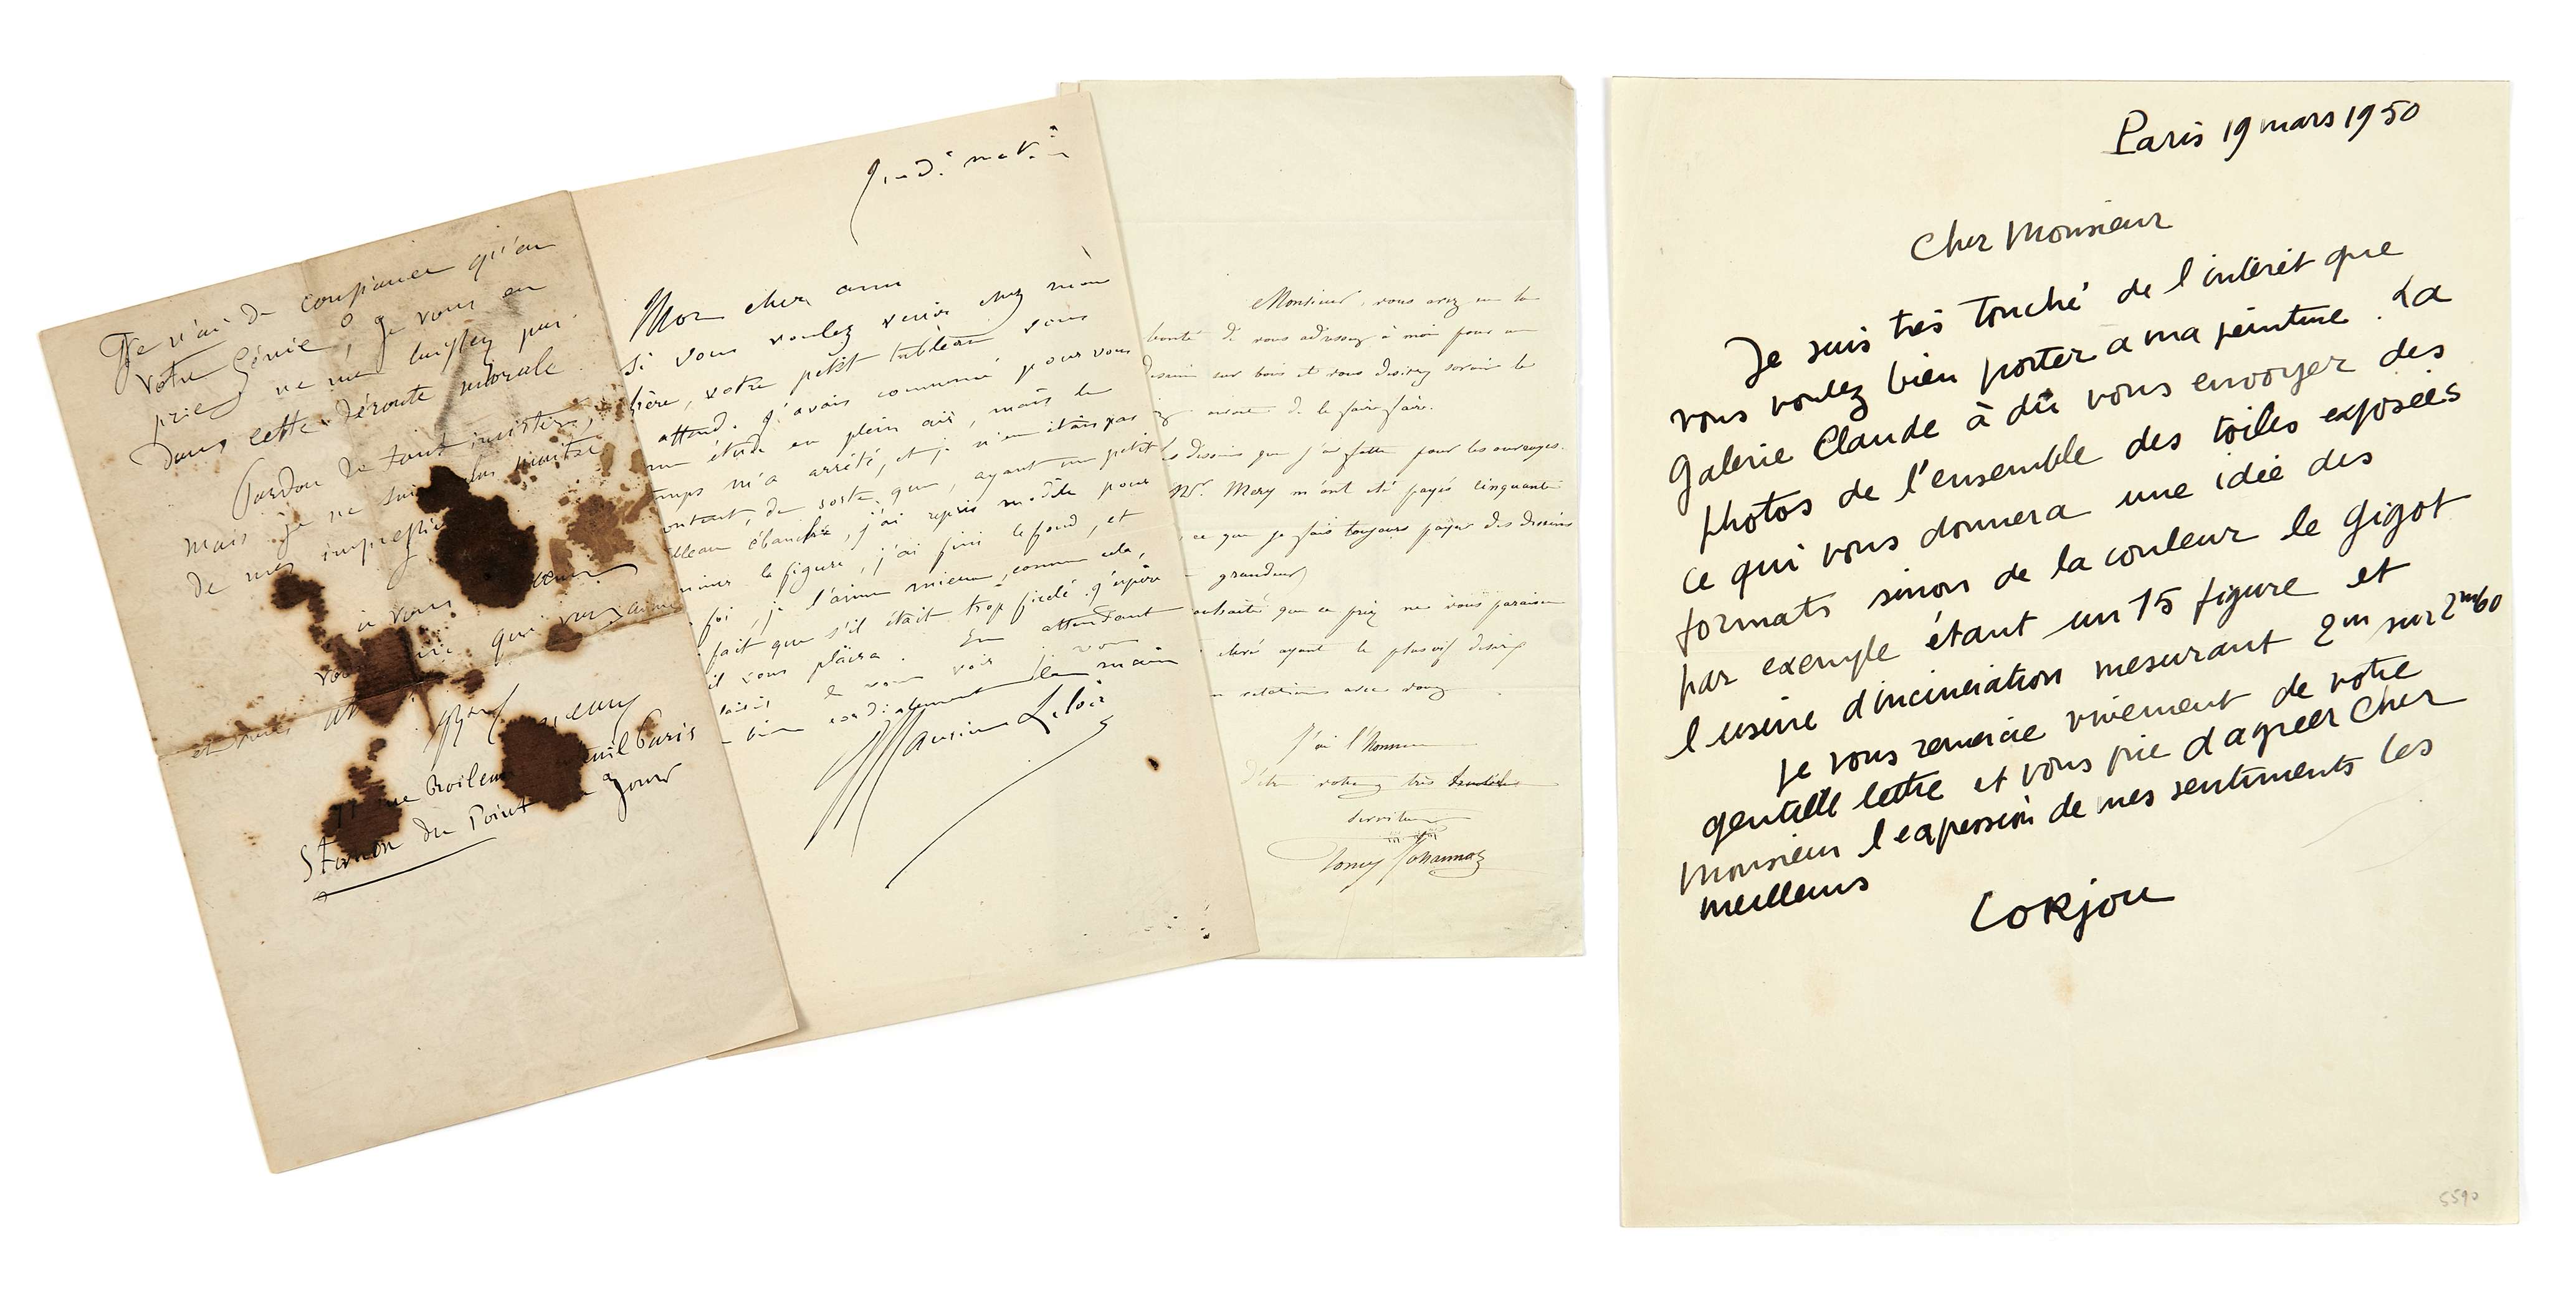 Je n'ai de confiance qu'en
votre Génie, Je vous en
prie, ne me laissez pas
dans cette déroute morale.
Pardon de tant insister,
mais je ne suis plus maître
de mes
à vous
qui vous aime
et
rue Boileau Auteuil Paris
Station du Point du Jour
Jeudi matin
Mon cher ami
Si vous voulez venir chez moi
votre petit tableau vous
attend. J'avais commencé pour vous
une étude en plein air, mais le
temps m'a arrêté, et je n'en étais pas
content, de sorte que, ayant un petit
tableau ébauché, j'ai repris modèle pour
la figure, j'ai fini le fond, et
foi, je l'aime mieux, comme cela,
fait que s'il était trop ficelé. J'espère
il vous plaira. En attendant
plaisir de vous voir je vous
bien cordialement la main
Maurice Leloir
Monsieur, vous avez eu la
bonté de vous adresser à moi pour un
dessin sur bois et vous désirez savoir le
avant de le faire faire.
les dessins que j'ai faits pour les ouvrages
Mr. Mary m'ont été payés cinquante
ce que je fais toujours payer des dessins
grandeur
souhaite que ce prix ne vous paraisse
élevé ayant le plus vif désir
relations avec vous.
J'ai l'honneur
d'être votre très
serviteur
Tony Johannot
Paris 19 mars 1950
Cher Monsieur
Je suis très touché de l'intérêt que
vous voulez bien porter a ma peinture. La
Galerie Claude à dû vous envoyer des
photos de l'ensemble des toiles exposées
ce qui vous donnera une idée des
formats sinon de la couleur le gigot
par exemple étant un 15 figure et
l'usine d'incineration mesurant 2m sur 2m60
Je vous remercie vivement de votre
gentille lettre et vous prie d'agréer Cher
Monsieur l'expression de mes sentiments les
meilleurs
Lorjou
5590